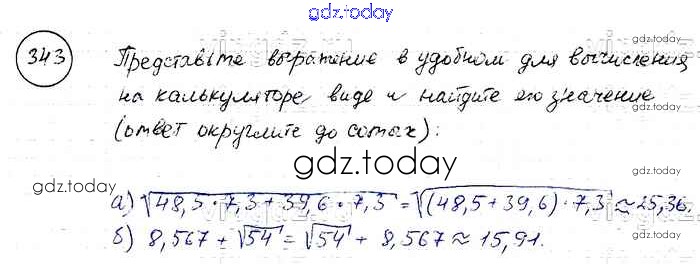 gdz.today
343
Представьте выражение в удобном для вычисления
на калькуляторе виде и найдите его значение
(ответ округлите до сотых):
gdz.today
а) √(48,5 · 7,3 + 39,6 · 7,3) = √((48,5 + 39,6) · 7,3) ≈ 25,36.
б) 8,567 + √54 = √54 + 8,567 ≈ 15,91.
gdz.today